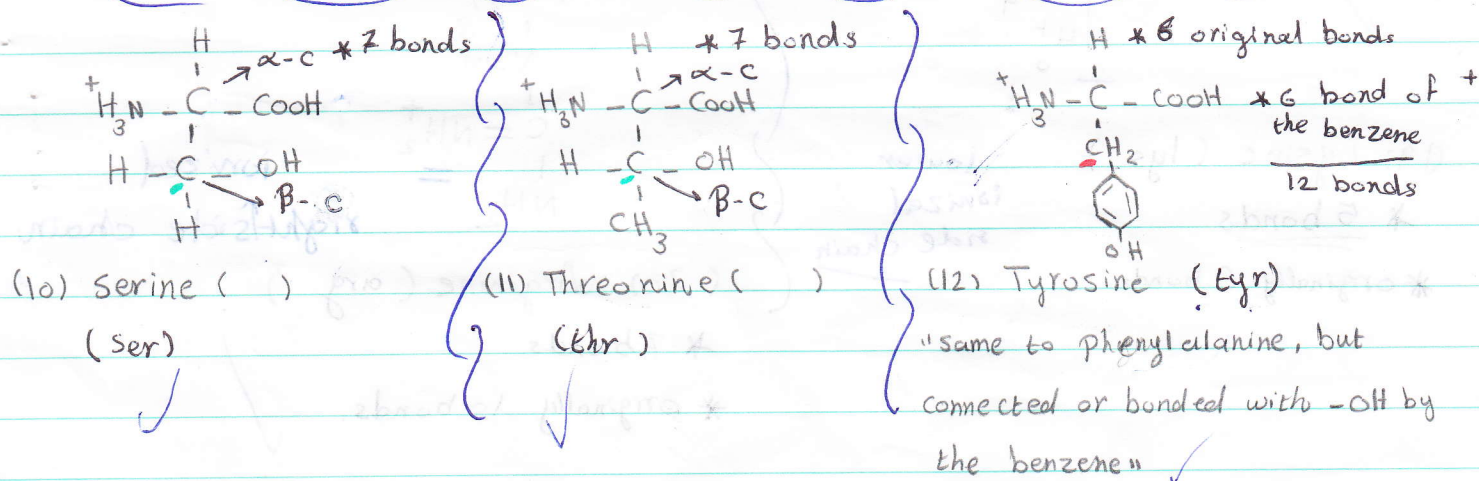 H
α-C * 7 bonds
+H3N - C - COOH
H - C - OH
β-C
H
(10) Serine ( )
(ser)
H * 7 bonds
α-C
+H3N - C - COOH
H - C - OH
β-C
CH3
(11) Threonine ( )
(thr)
H * 6 original bonds
+H3N - C - COOH * 6 bond of +
the benzene
CH2
12 bonds
OH
(12) Tyrosine (tyr)
"same to phenylalanine, but
connected or bonded with -OH by
the benzene"